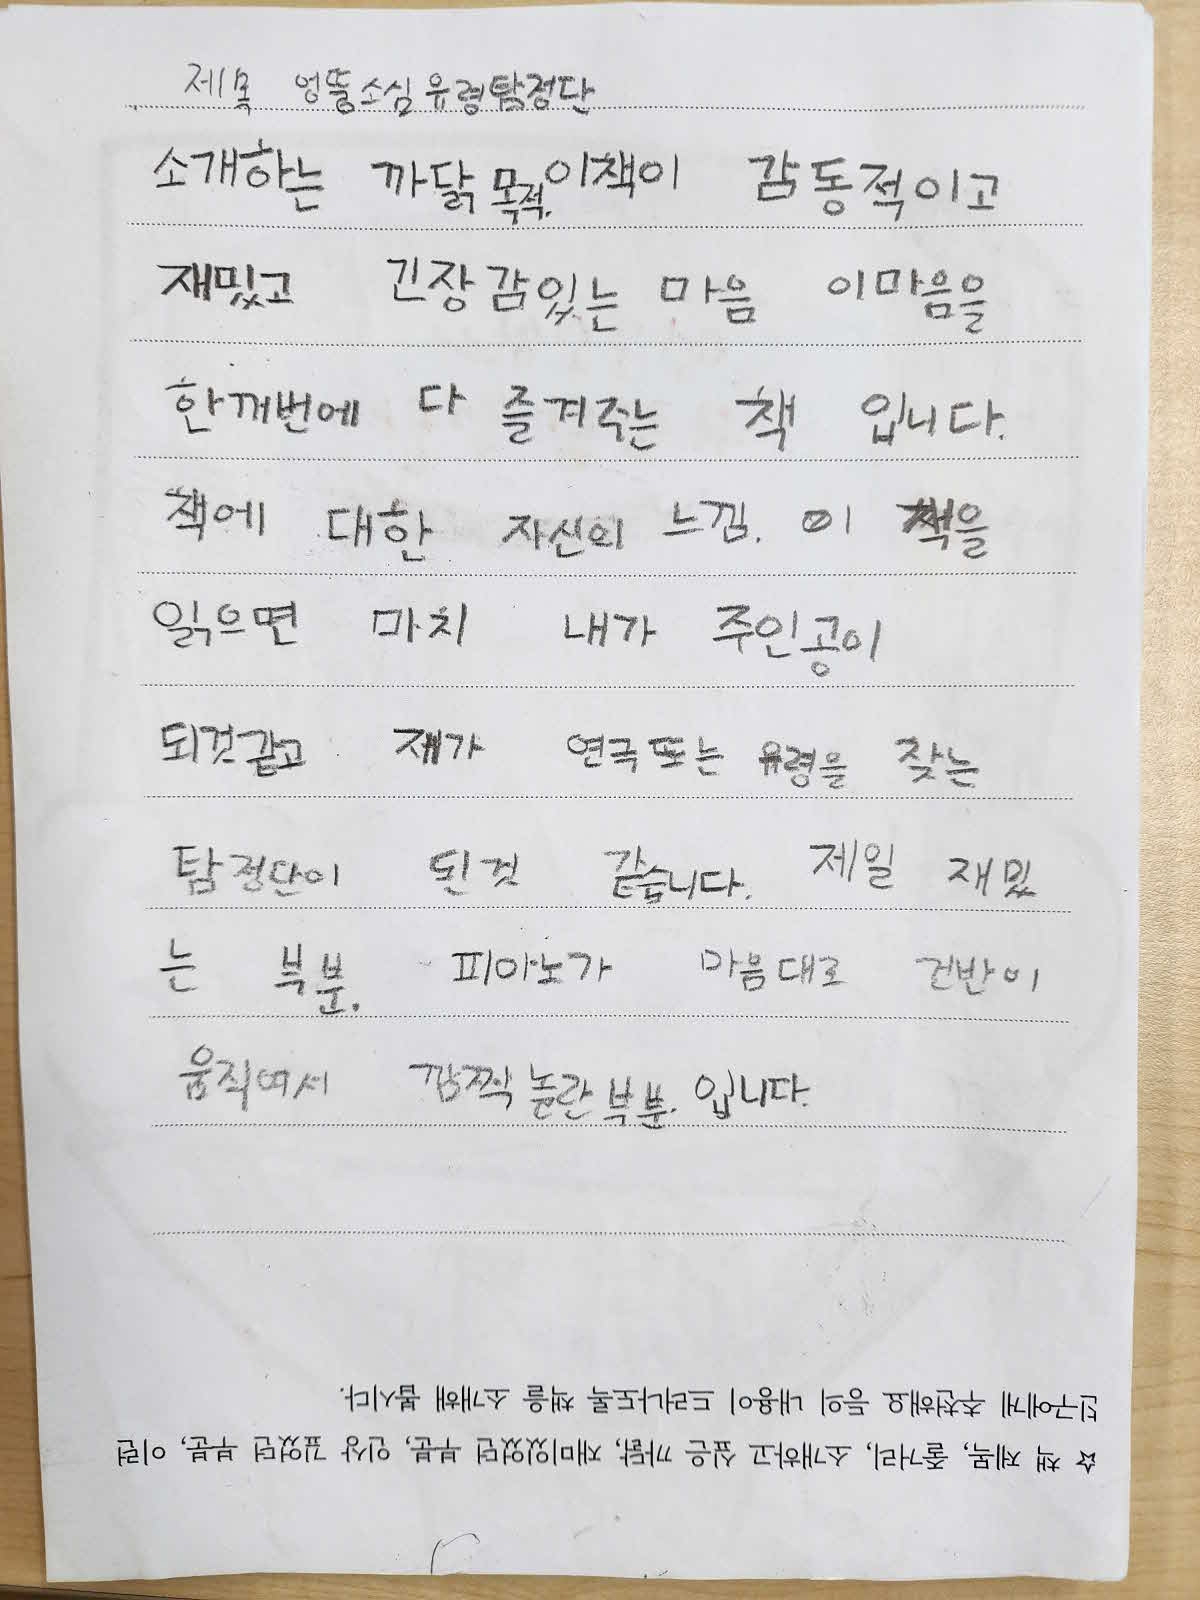 제목 엉뚱소심유령탐정단
소개하는 까닭 목적. 이책이 감동적이고
재밌고 긴장감있는 마음 이마음을
한께번에 다 즐겨주는 책 입니다.
책에 대한 자신의 느낌. 이 책을
읽으면 마치 내가 주인공이
되것같고 제가 연극또는 유령을 찾는
탐정단이 된것 같습니다. 제일 재밌
는 부분. 피아노가 마음대로 건반이
움직여서 깜짝 놀란 부분. 입니다.
☆ 책 제목, 줄거리, 소개하고 싶은 까닭, 재미있었던 부분, 인상 깊었던 부분, 이런
친구에게 추천해요 등의 내용이 드러나도록 책을 소개해 봅시다.